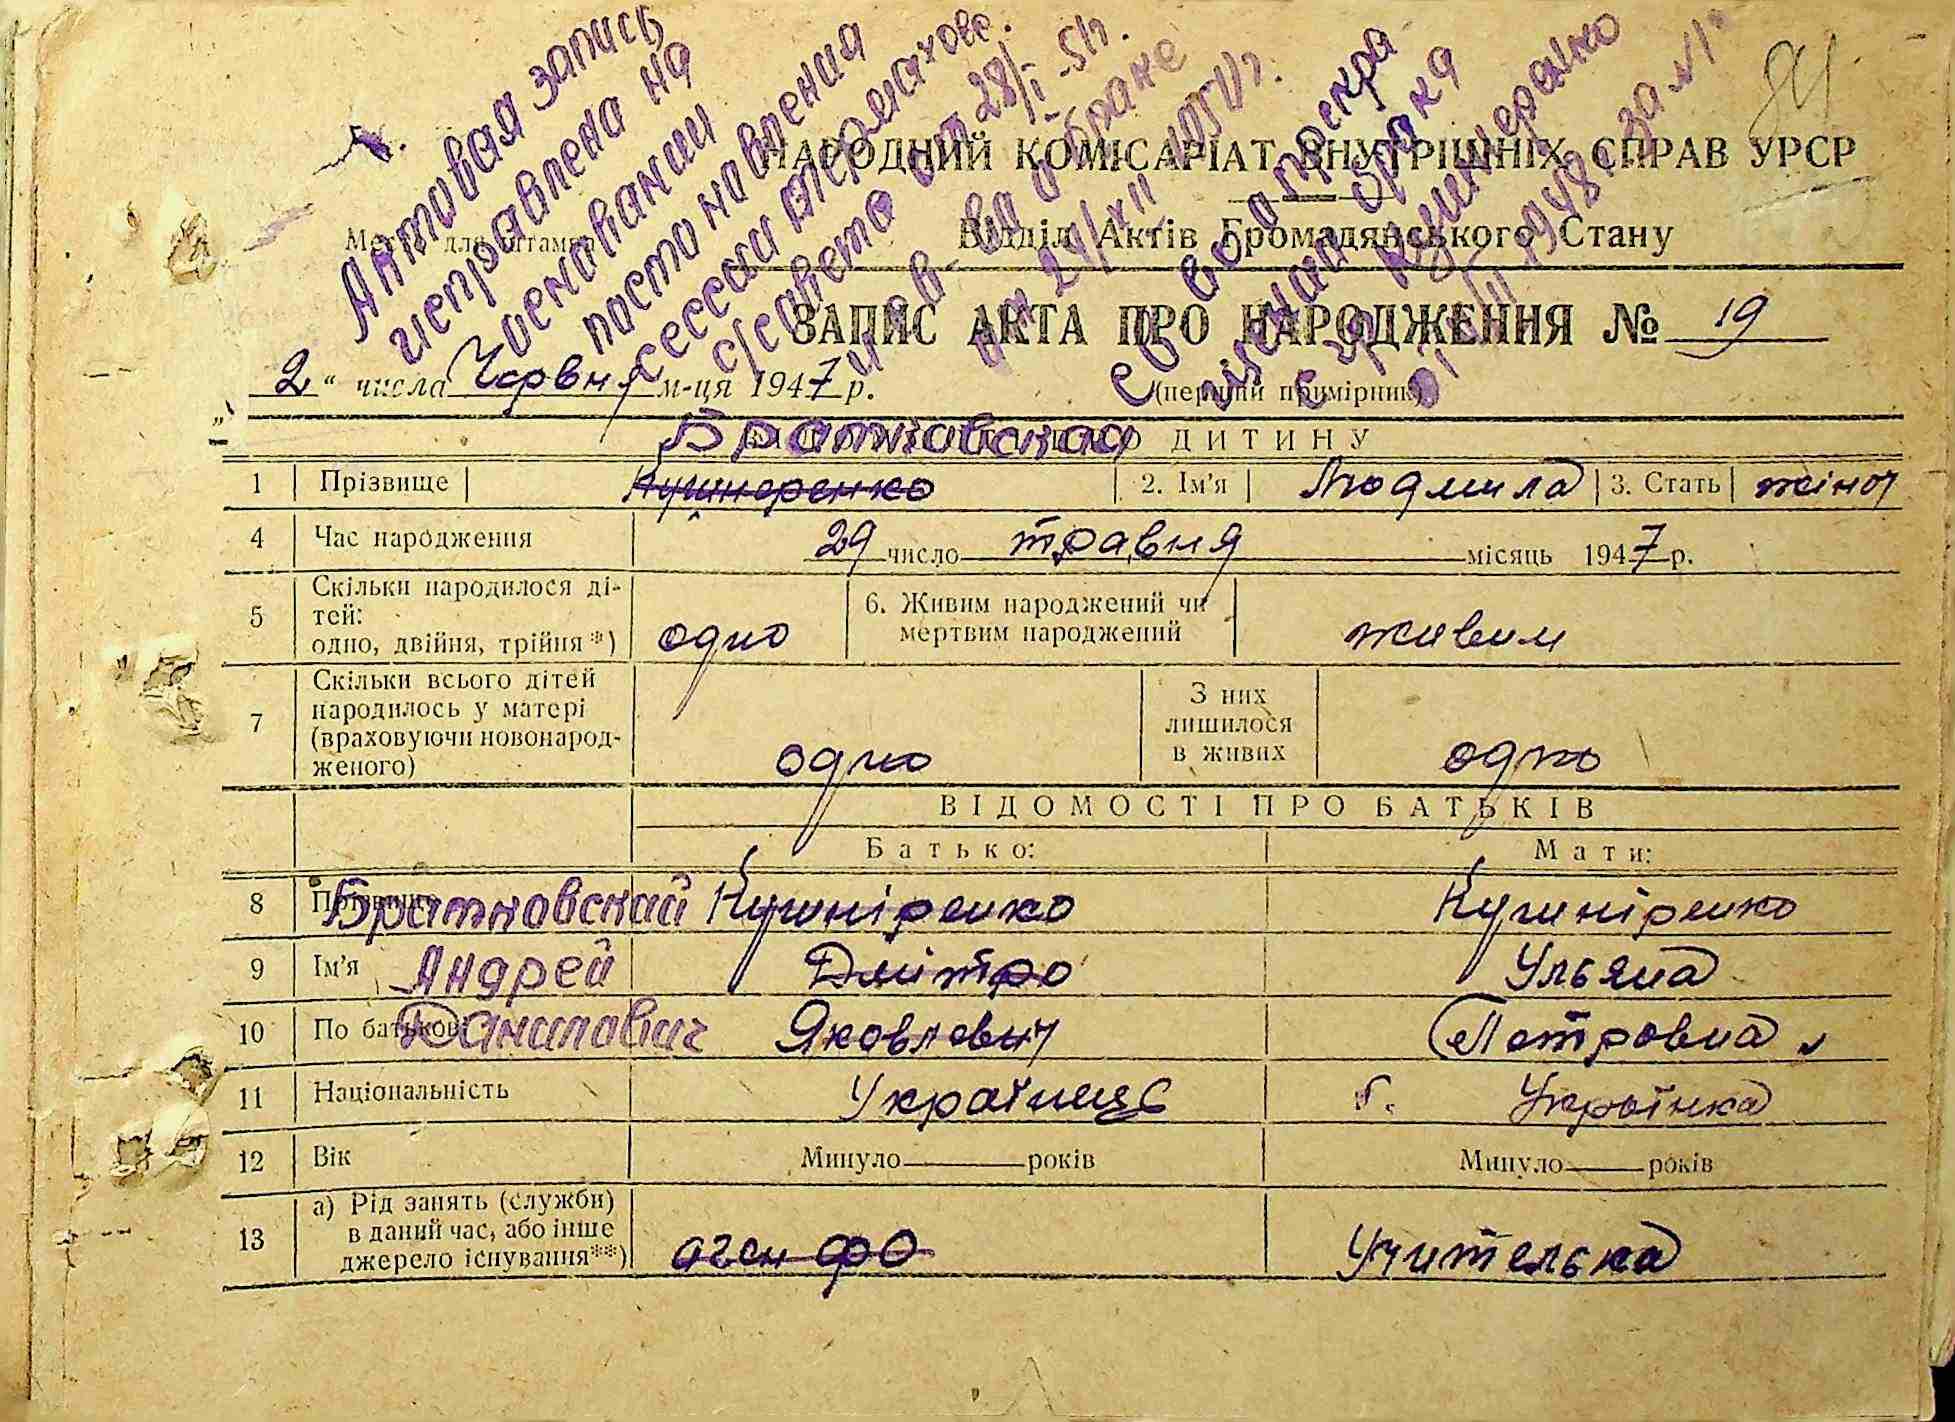 Актовая запись
исправлена на
основании
постановления
сессии
с/совета от 28/I-51г.
и св-ва о браке
от 24/XII 1951г.
брака
Кушнеренко
1948г. за №1
84
НАРОДНИЙ КОМІСАРІАТ ВНУТРІШНІХ СПРАВ УРСР
Место для штампа
Відділ Актів Громадянського Стану
ЗАПИС АКТА ПРО НАРОДЖЕННЯ № 19
„2“ числа Червня м-ця 1947 р.
(перший примірник)
Братковская
ДИТИНУ
1 Прізвище Кушнеренко 2. Ім'я Людмила 3. Стать жіноч
4 Час народження 29 число травня місяць 1947 р.
5 Скільки народилося ді-
тей:
одно, двійня, трійня*) одно 6. Живим народжений чи
мертвим народжений живим
7 Скільки всього дітей
народилось у матері
(враховуючи новонарод-
женого) одно З них
лишилося
в живих одно
ВІДОМОСТІ ПРО БАТЬКІВ
Батько: Мати:
8 Прізвище Братковский Кушніренко Кушніренко
9 Ім'я Андрей Дмітро Ульяна
10 По батькові Данилович Яковлевич Петровна
11 Національність Українець Українка
12 Вік Минуло років Минуло років
13 а) Рід занять (служби)
в даний час, або інше
джерело існування**) аген фо Учителька